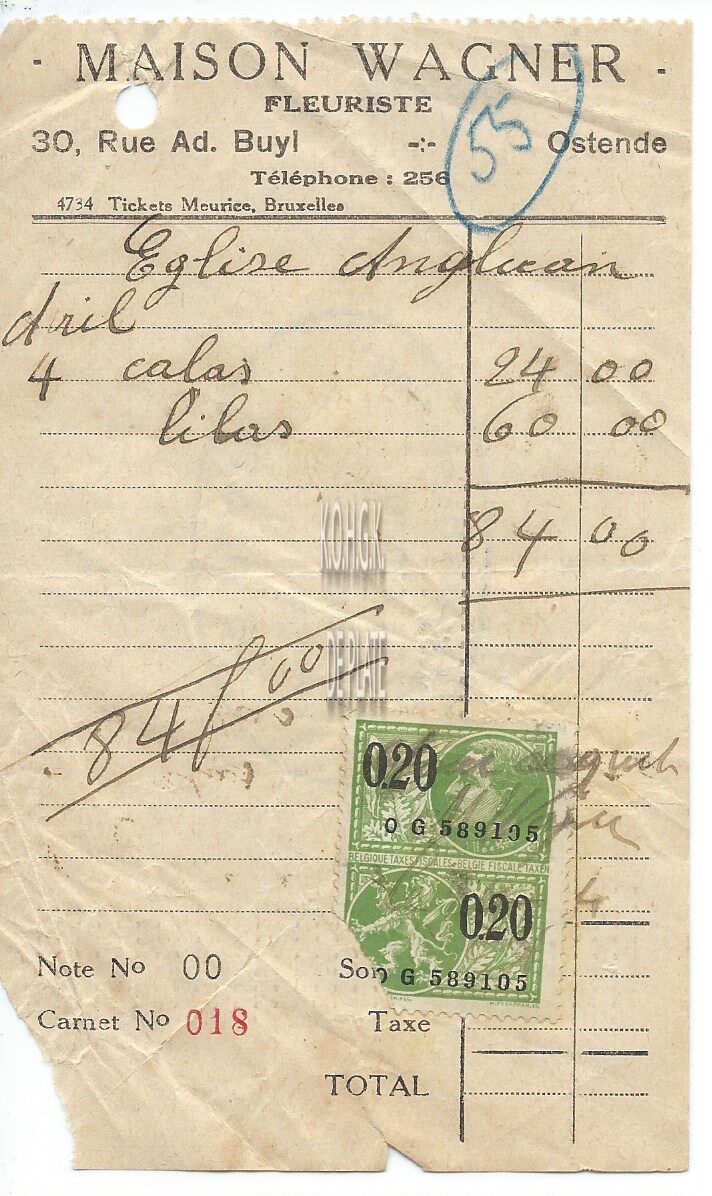 · MAISON WAGNER ·
FLEURISTE
30, Rue Ad. Buyl -:- Ostende
55
Téléphone : 256
4734 Tickets Meurice, Bruxelles
Eglise Anglican
Avril
4 calas 24 00
lilas 60 00
84 00
84 f 00
K.O.H.G.K.
DE PLATE
0.20
O G 589105
BELGIQUE TAXES FISCALES - BELGIE FISCALE TAXEN
0.20
O G 589105
Note No 00
Carnet No 018
Taxe
TOTAL